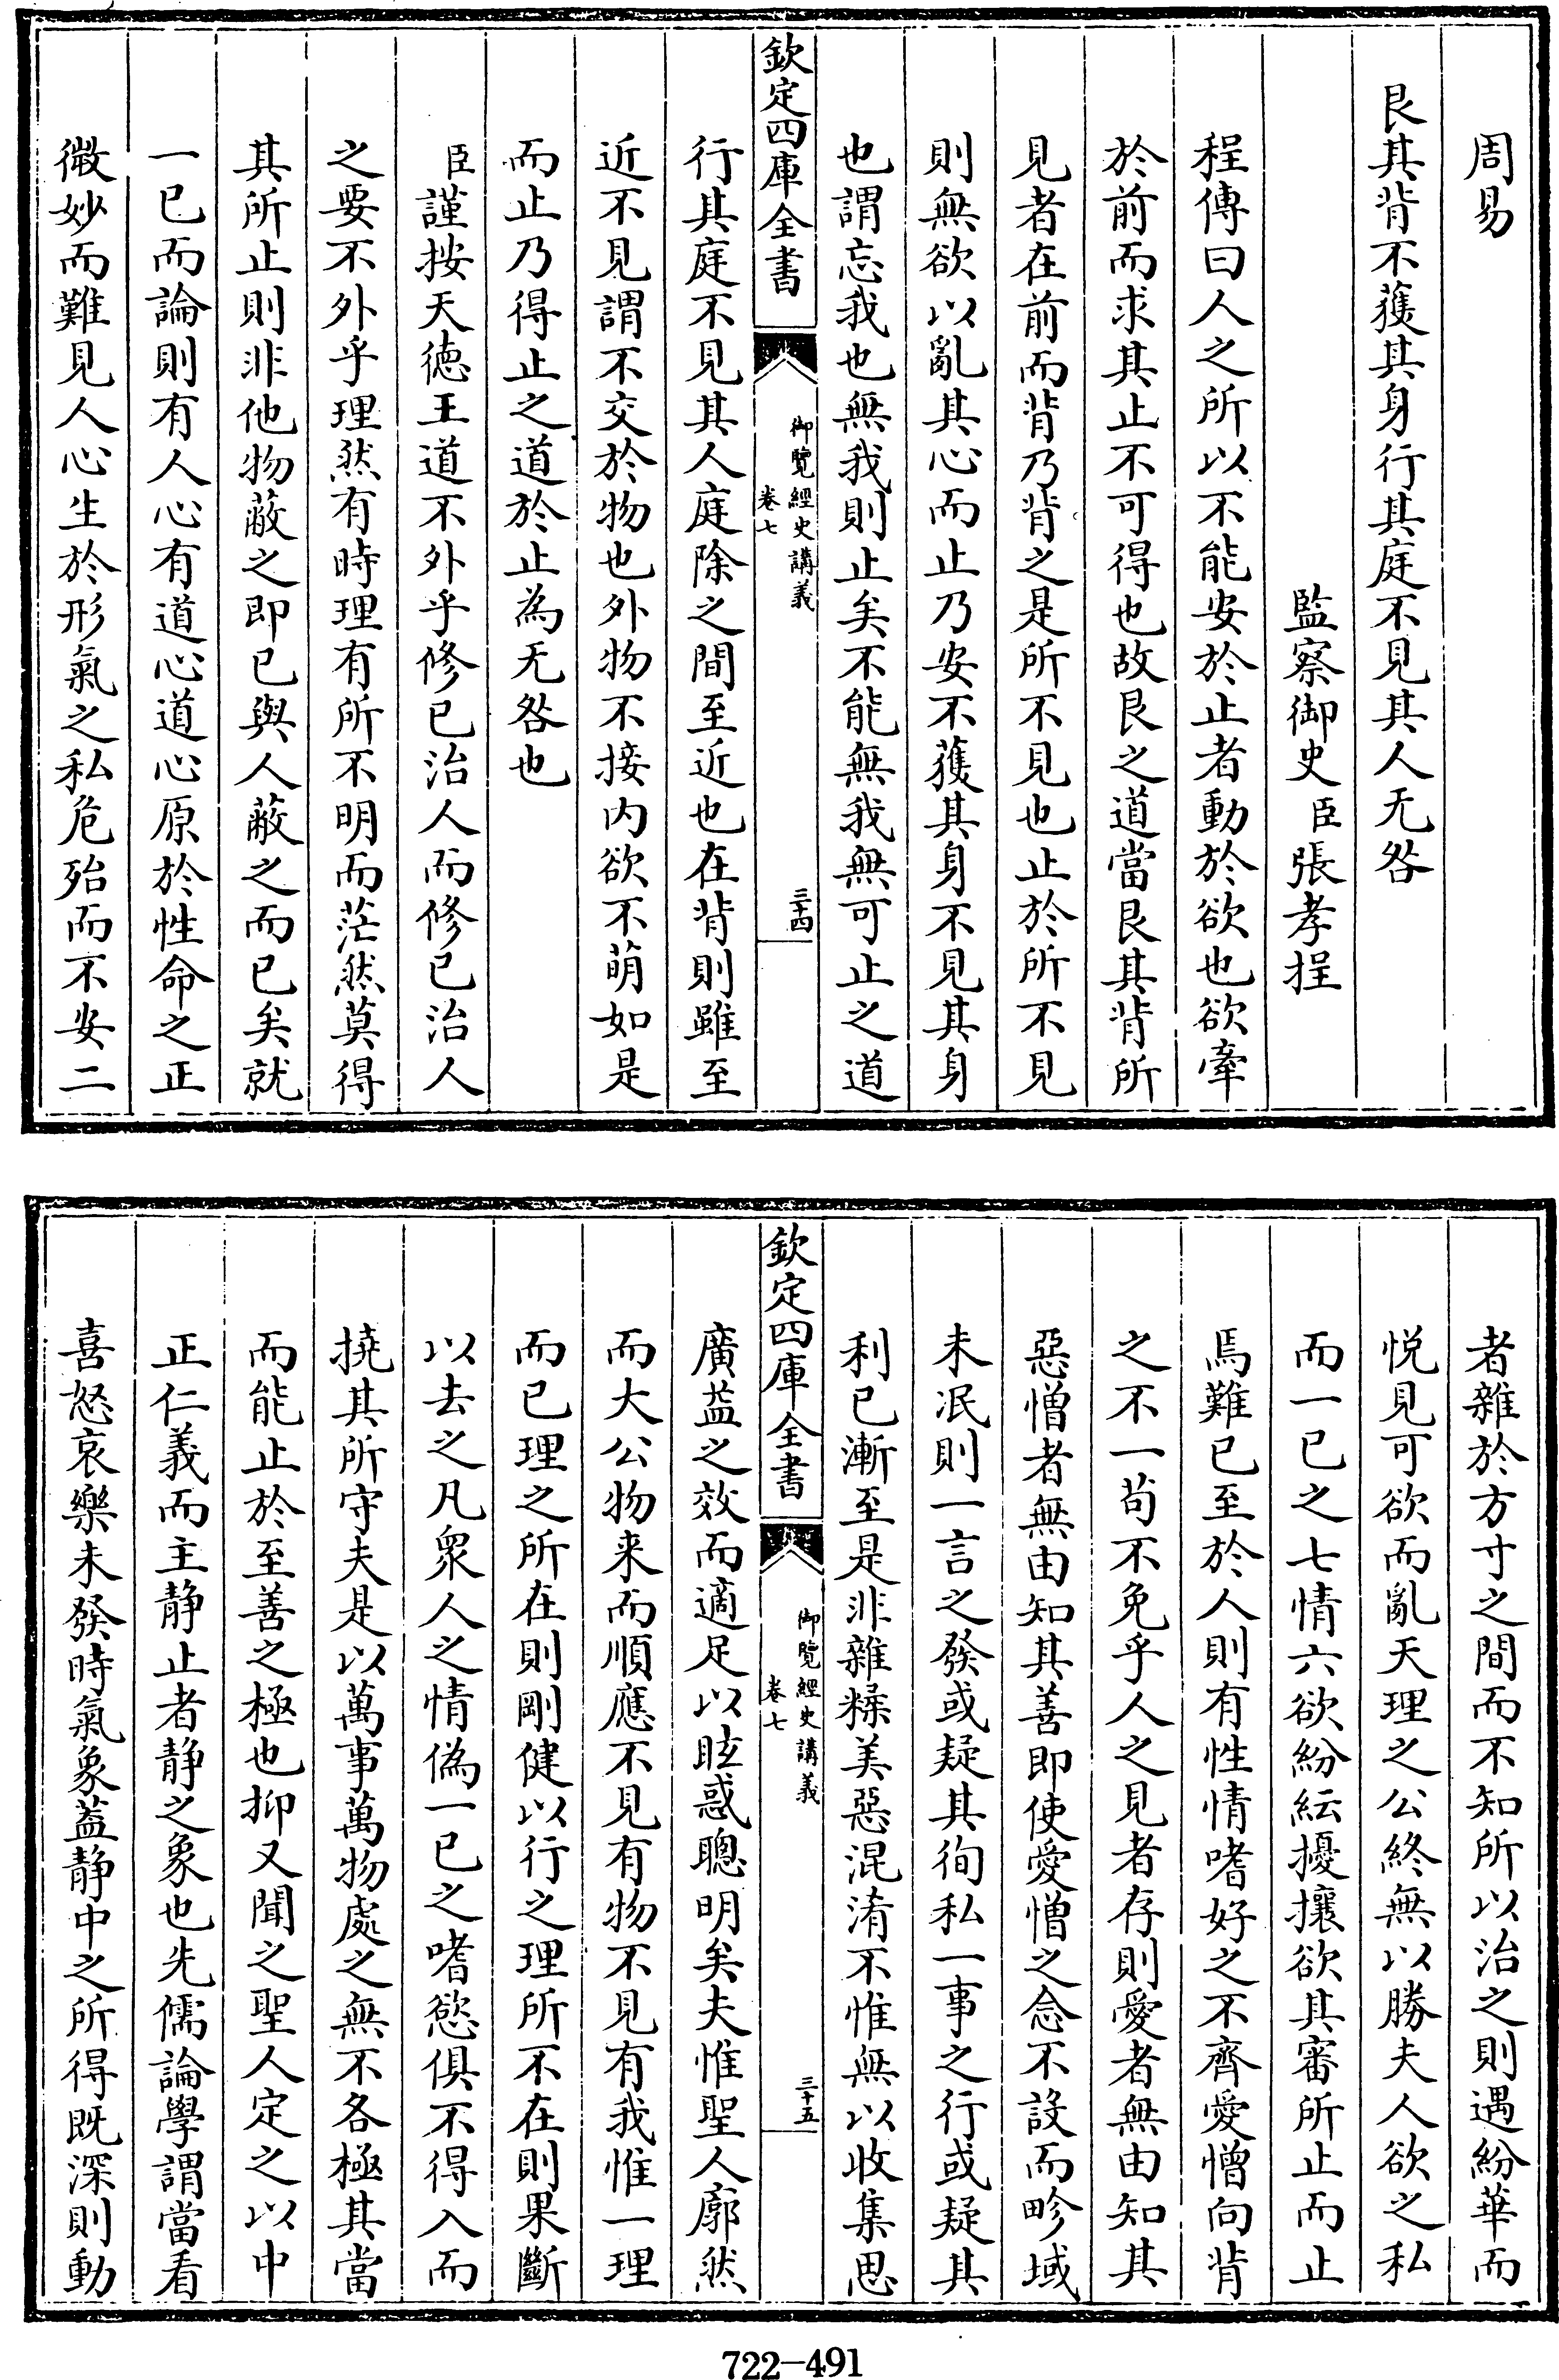 周易
艮其背不獲其身行其庭不見其人无咎
監察御史臣張孝捏
程傳曰人之所以不能安於止者動於欲也欲牽
於前而求其止不可得也故艮之道當艮其背所
見者在前而背乃背之是所不見也止於所不見
則無欲以亂其心而止乃安不獲其身不見其身
也謂忘我也無我則止矣不能無我無可止之道
欽定四庫全書
御覽經史講義
卷七
三十四
行其庭不見其人庭除之間至近也在背則雖至
近不見謂不交於物也外物不接内欲不萌如是
而止乃得止之道於止為无咎也
臣謹按天德王道不外乎修已治人而修已治人
之要不外乎理然有時理有所不明而茫然莫得
其所止則非他物蔽之即已與人蔽之而已矣就
一已而論則有人心有道心道心原於性命之正
微妙而難見人心生於形氣之私危殆而不安二
者雜於方寸之間而不知所以治之則遇紛華而
悦見可欲而亂天理之公終無以勝夫人欲之私
而一已之七情六欲紛紜擾攘欲其審所止而止
焉難已至於人則有性情嗜好之不齊愛憎向背
之不一苟不免乎人之見者存則愛者無由知其
惡憎者無由知其善即使愛憎之念不設而畛域
未泯則一言之發或疑其徇私一事之行或疑其
利已漸至是非雜糅美惡混淆不惟無以收集思
欽定四庫全書
御覽經史講義
卷七
三十五
廣益之效而適足以眩惑聰明矣夫惟聖人廓然
而大公物来而順應不見有物不見有我惟一理
而已理之所在則剛健以行之理所不在則果斷
以去之凡衆人之情偽一已之嗜慾俱不得入而
撓其所守夫是以萬事萬物處之無不各極其當
而能止於至善之極也抑又聞之聖人定之以中
正仁義而主静止者静之象也先儒論學謂當看
喜怒哀樂未發時氣象蓋静中之所得既深則動
722-491